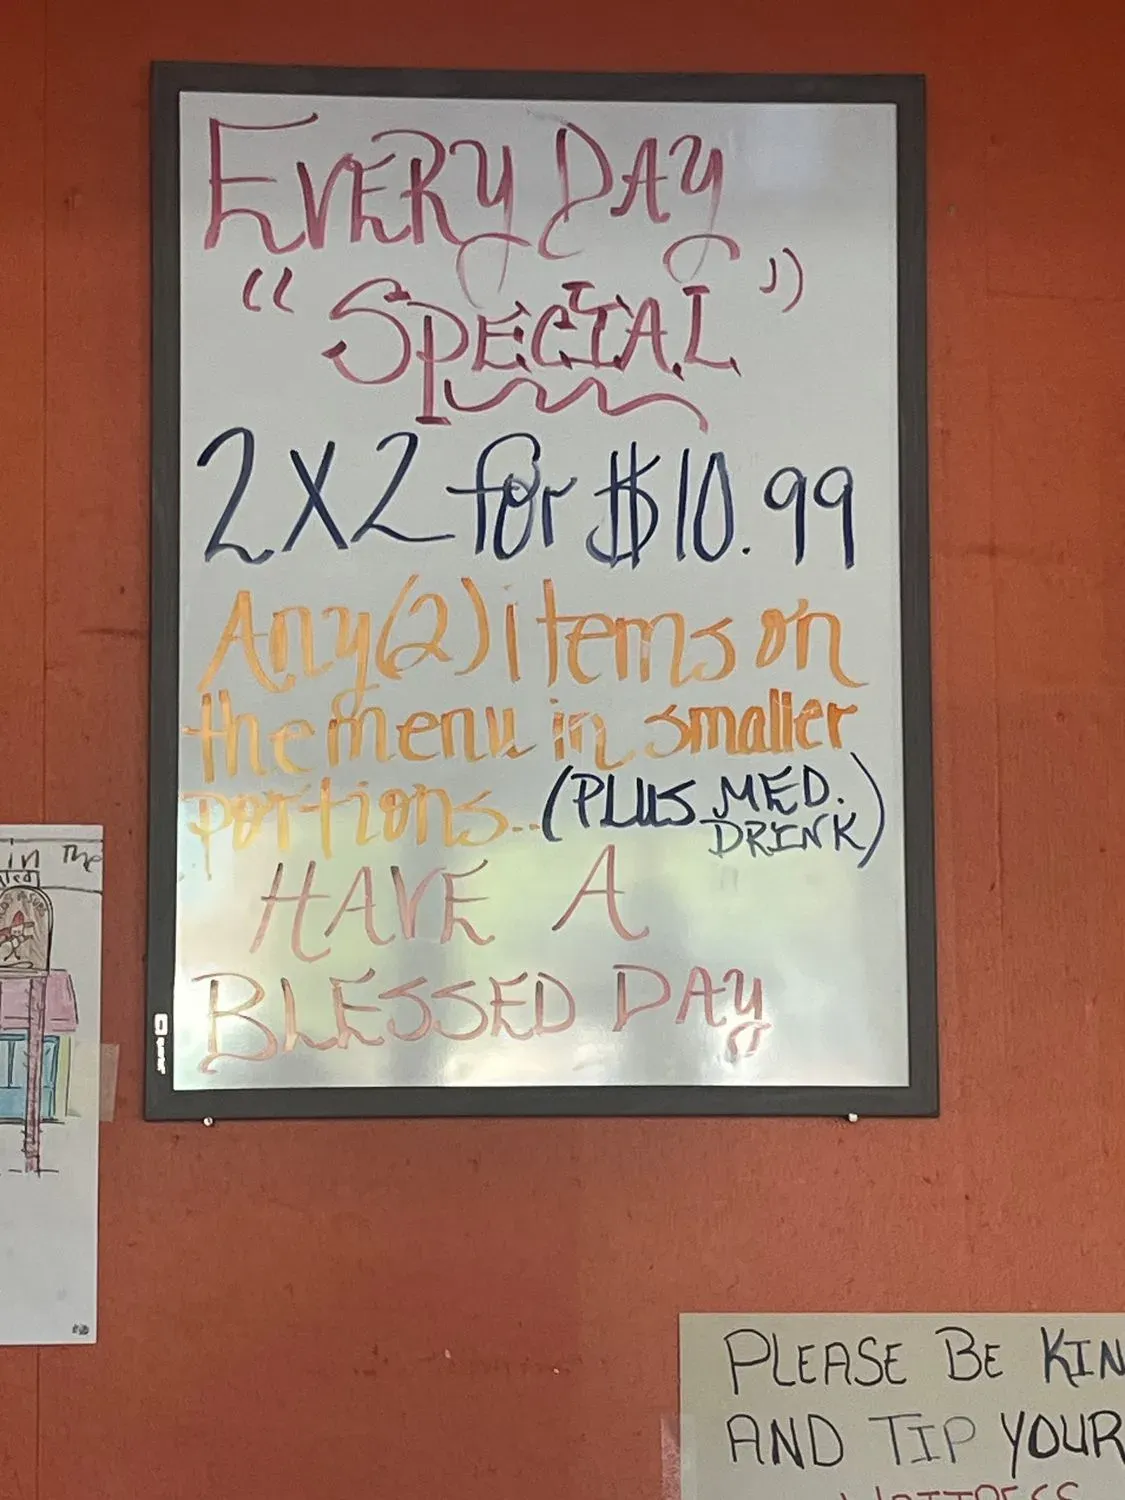 EVERY DAY
"SPECIAL"
2X2 for $10.99
Any (2) items on
the menu in smaller
portions.. (PLUS MED.
DRINK)
HAVE A
BLESSED DAY
in The
PLEASE BE KIN
AND TIP YOUR